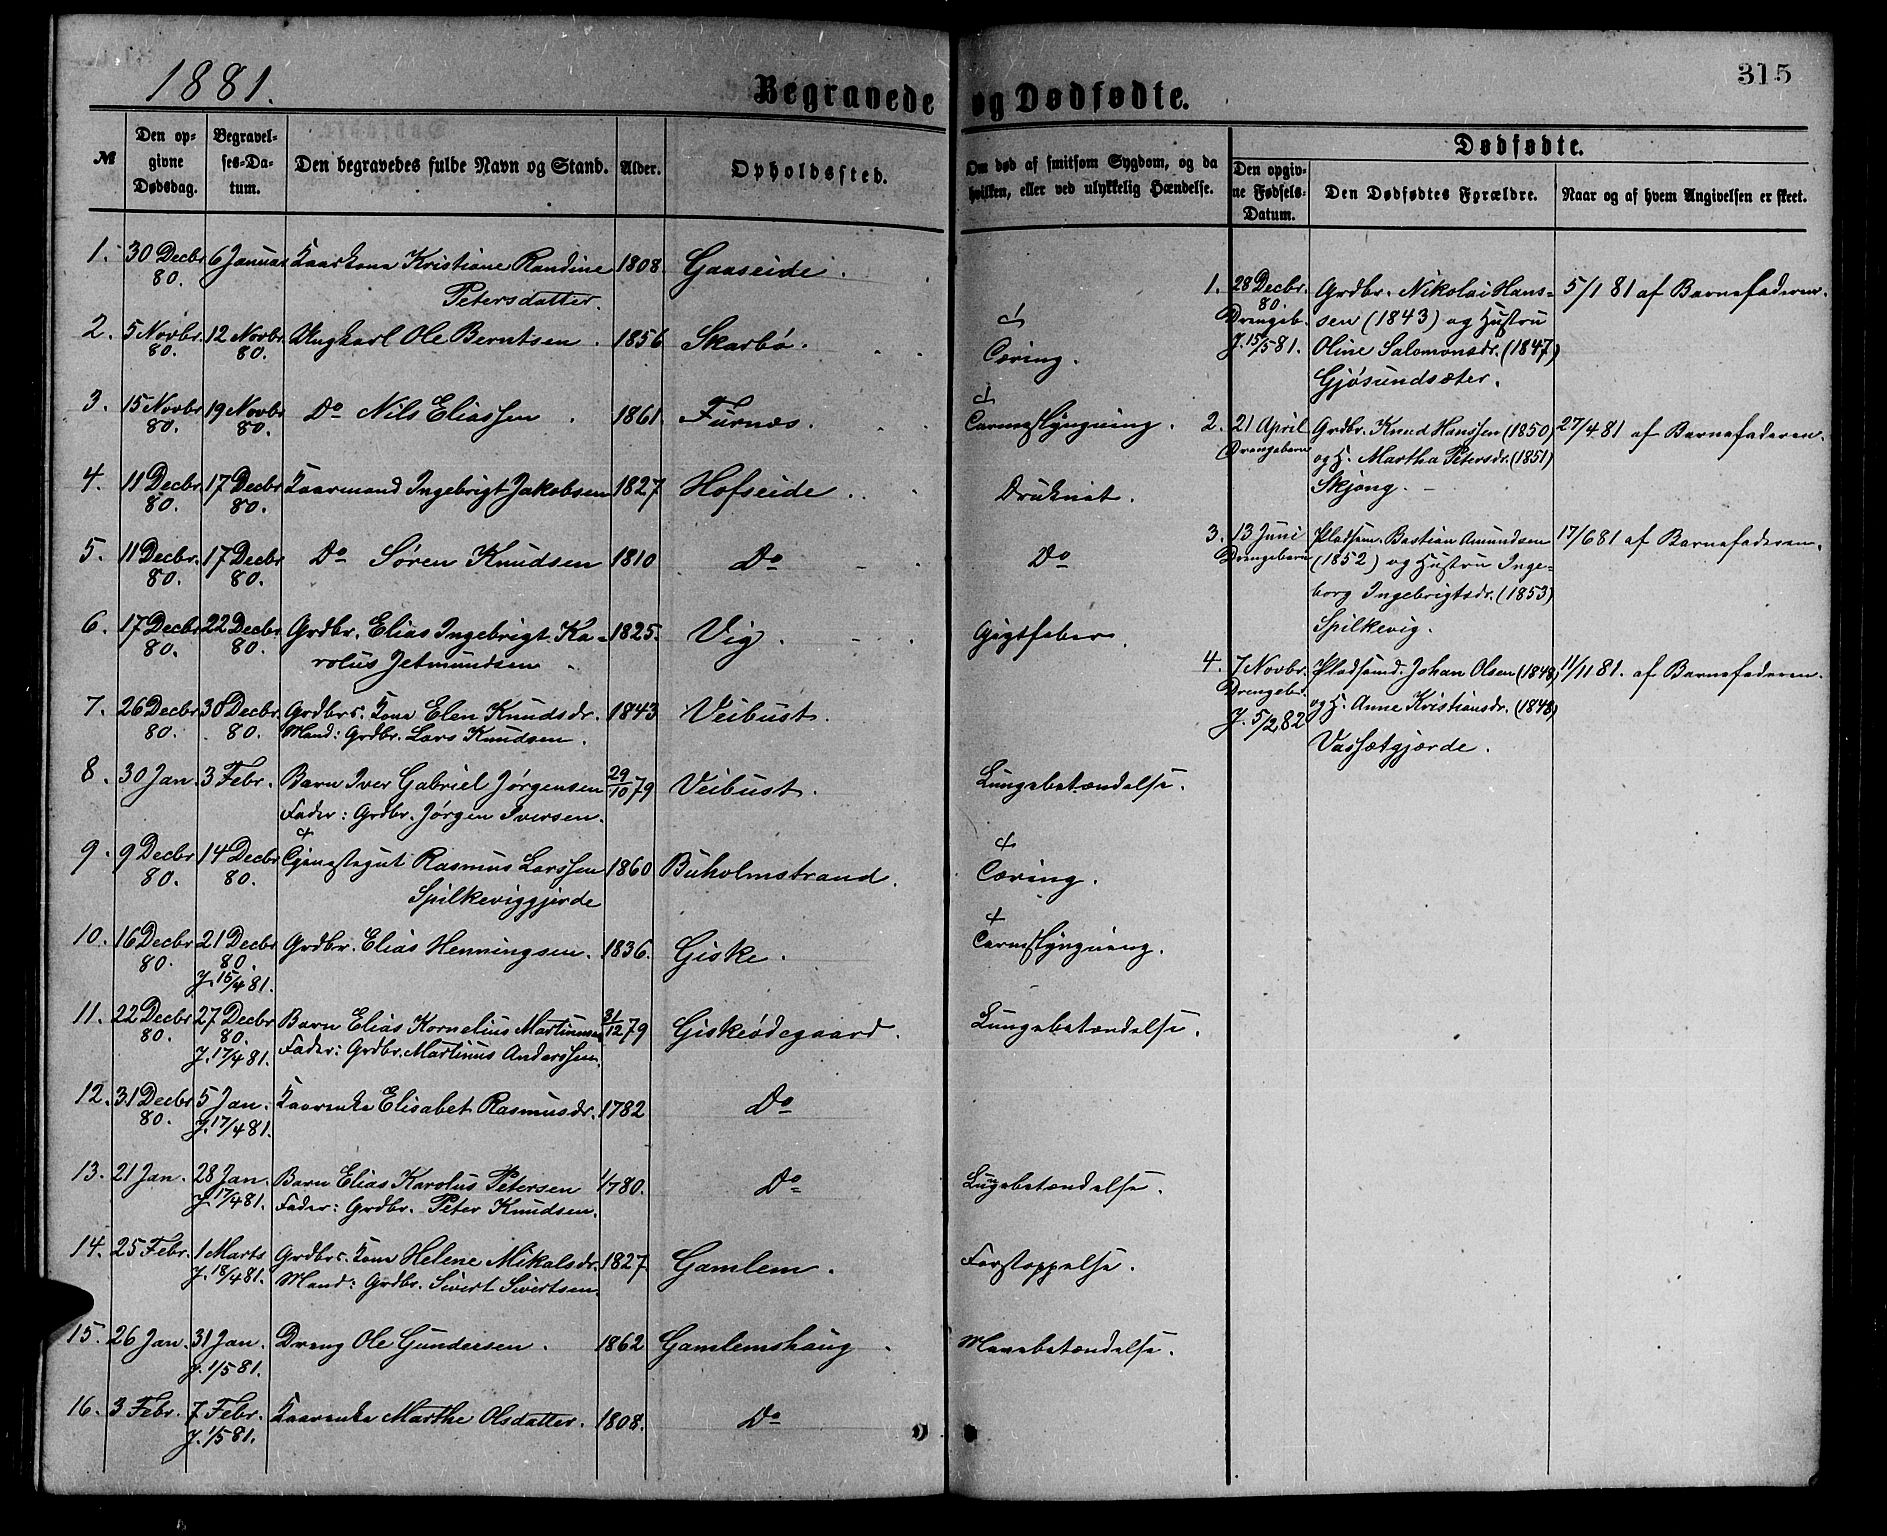 1881.
Begravede og Dødfødte.
315
№
Den opgivne Dødsdag.
Begravelses-Datum.
Den begravedes fulde Navn og Stand.
Alder.
Opholdssted.
Om død af smitsom Sygdom, og da hvilken, eller ved ulykkelig Hændelse.
Dødfødte.
Den opgivne Fødsels-Datum.
Den Dødfødtes Forældre.
Naar og af hvem Angivelsen er skeet.
1. 30 Decbr 80. 6 Januar Kaarkone Kristiane Randine 1808. Gaaseide.
Petersdatter.
2. 5 Novbr. 80. 12 Novbr 80. Ungkarl Ole Berntsen. 1856 Skarbø. Tæring.
3. 15 Novbr 80. 19 Novbr 80. Do Nils Eliassen. 1861. Furnæs. Tarmslyngning.
4. 11 Decbr. 80. 17 Decbr 80. Kaarmand Ingebrigt Jakobsen 1827 Hofseide. Druknet.
5. 11 Decbr. 80. 17 Decbr 80. Do Søren Knudsen 1810 Do Do
6. 17 Decbr 80. 22 Decbr 80. Grdbr. Elias Ingebrigt Ka- 1825. Vig. Gigtfeber.
rolus Jetmundsen
7. 26 Decbr 80. 30 Decbr. 80. Grdbrs. Kone Elen Knudsdr. 1843 Veibust.
Mand: Grdbr. Lars Knudsen.
8. 30 Jan. 3 Febr. Barn Iver Gabriel Jørgensen 29/10 79 Veibust. Lungebetændelse.
Fader: Grdbr. Jørgen Iversen.
9. 9 Decbr 80. 14 Decbr 80. Tjenestegut Rasmus Larssen 1860 Buholmstrand. Tæring.
Spilkeviggjerde
10. 16 Decbr 80. 21 Decbr 80. Grdbr. Elias Henningsen. 1836. Giske. Tarmslyngning.
J. 15/4 81.
11. 22 Decbr 80. 27 Decbr 80. Barn Elias Kornelius Martinussen 31/12 79 Giskeødegaard. Lungebetændelse.
J. 17/4 81. Fader: Grdbr. Martinus Anderssen.
12. 31 Decbr 80. 5 Jan. Kaarenke Elisabet Rasmusdr. 1782 Do
J. 17/4 81.
13. 21 Jan. 28 Jan. Barn Elias Karolus Petersen 1/7 80. Do Lungebetændelse.
J. 17/4 81. Fader: Grdbr. Peter Knudsen.
14. 25 Febr. 1 Marts Grdbrs. Kone Helene Mikalsdr. 1827. Gamlem. Forstoppelse.
J. 18/4 81. Mand: Grdbr. Sivert Sivertsen.
15. 26 Jan. 31 Jan. Dreng Ole Gundersen. 1862 Gamlemshaug. Mavebetændelse.
J. 1/5 81.
16. 3 Febr. 7 Febr. Kaarenke Marthe Olsdatter. 1808. Do
J. 1/5 81.
1. 28 Decbr. 80. Grdbr. Nikolai Hans- 5/1 81 af Barnefaderen.
Drengeb. sen (1843) og Hustru
J. 15/5 81. Oline Salomonsdr. (1847)
Gjøsundsæter.
2. 21 April Grdbr. Knud Hanssen (1850) 27/4 81 af Barnefaderen.
Drengebarn og H. Martha Petersdr. (1851)
Skjong.
3. 13 Juni Pladsm. Bastian Amundsen 17/6 81 af Barnefaderen.
Drengebarn (1852) og Hustru Inge-
borg Ingebrigtsdr. (1853)
Spilkevig.
4. 7 Novbr. Pladsmd. Johan Olsen (1848) 11/11 81. af Barnefaderen.
Drengebd. og H. Anne Kristiansdr. (1848)
J. 5/2 82 Vassætgjærde.